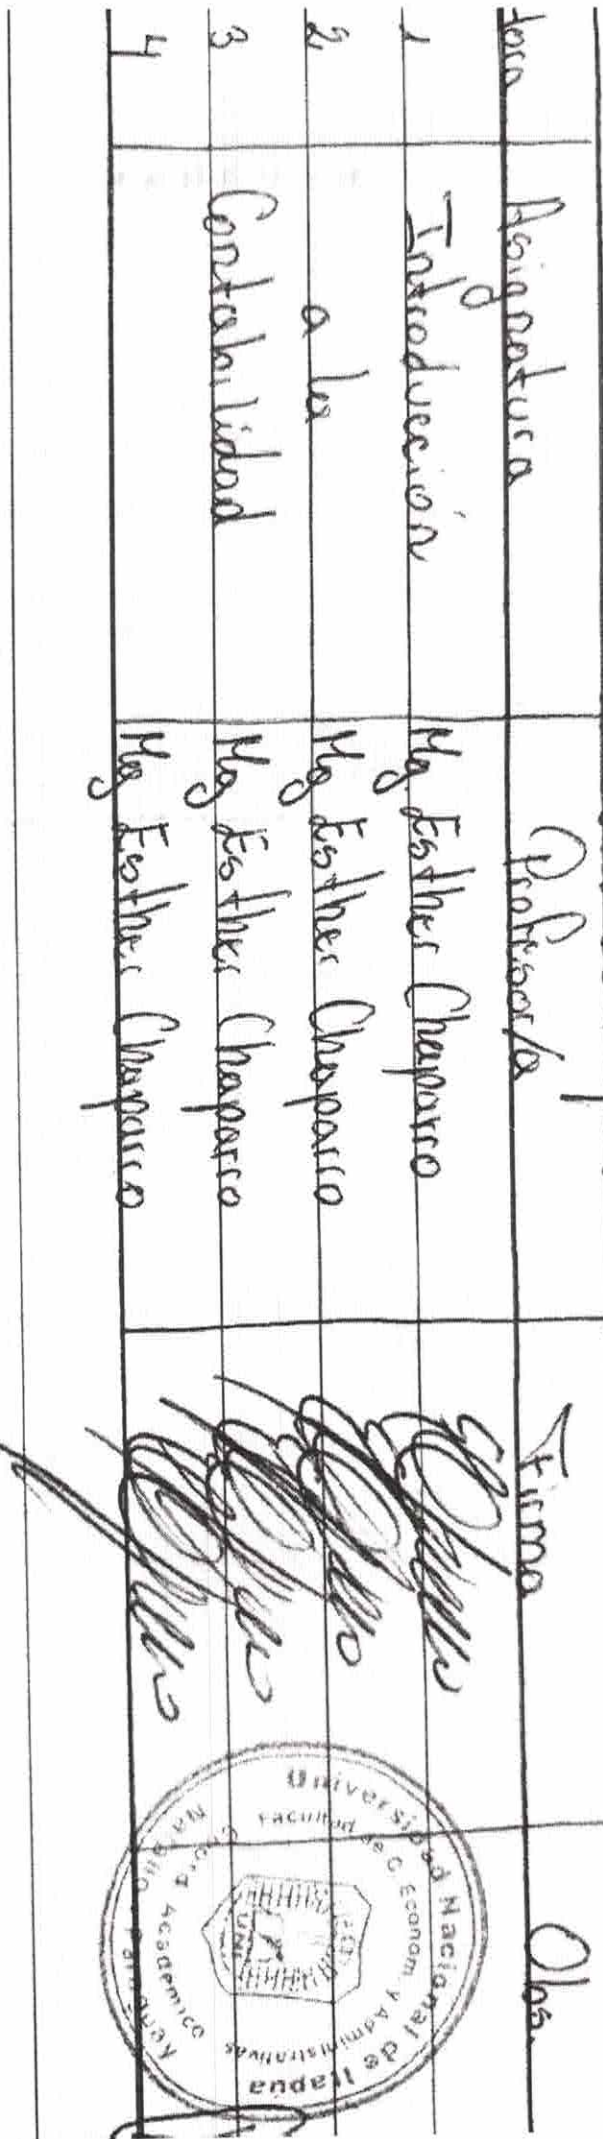 Hora Asignatura Profesor/a Firma Obs.
1 Introducción Mg Esther Chaparro
2 a la Mg Esther Chaparro
3 Contabilidad Mg Esther Chaparro
4 Mg Esther Chaparro
Universidad Nacional de Itapúa
Facultad de C. Econom. y Administrativas
Coord. Académico
Natalio
UNI